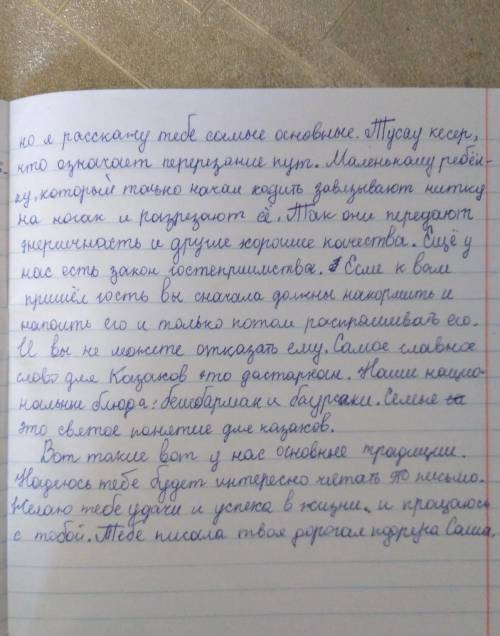 но я расскажу тебе самые основные. Тусау кесер,
что означает перерезание пут. Маленькому ребён-
ку, который только начал ходить завязывают нитку
на ногах и разрезают её. Так они передают
энергичность и другие хорошие качества. Ещё у
нас есть закон гостеприимства. Если к вам
пришёл гость вы сначала должны накормить и
напоить его и только потом распрашивать его.
И вы не можете отказать ему. Самое главное
слово для Казахов это дастархан. Наши нацио-
нальные блюда: бешбармак и баурсаки. Семья
это святое понятие для казахов.
Вот такие вот у нас основные традиции.
Надеюсь тебе будет интересно читать это письмо.
Желаю тебе удачи и успеха в жизни, и прощаюсь
с тобой. Тебе писала твоя дорогая подруга Саша.